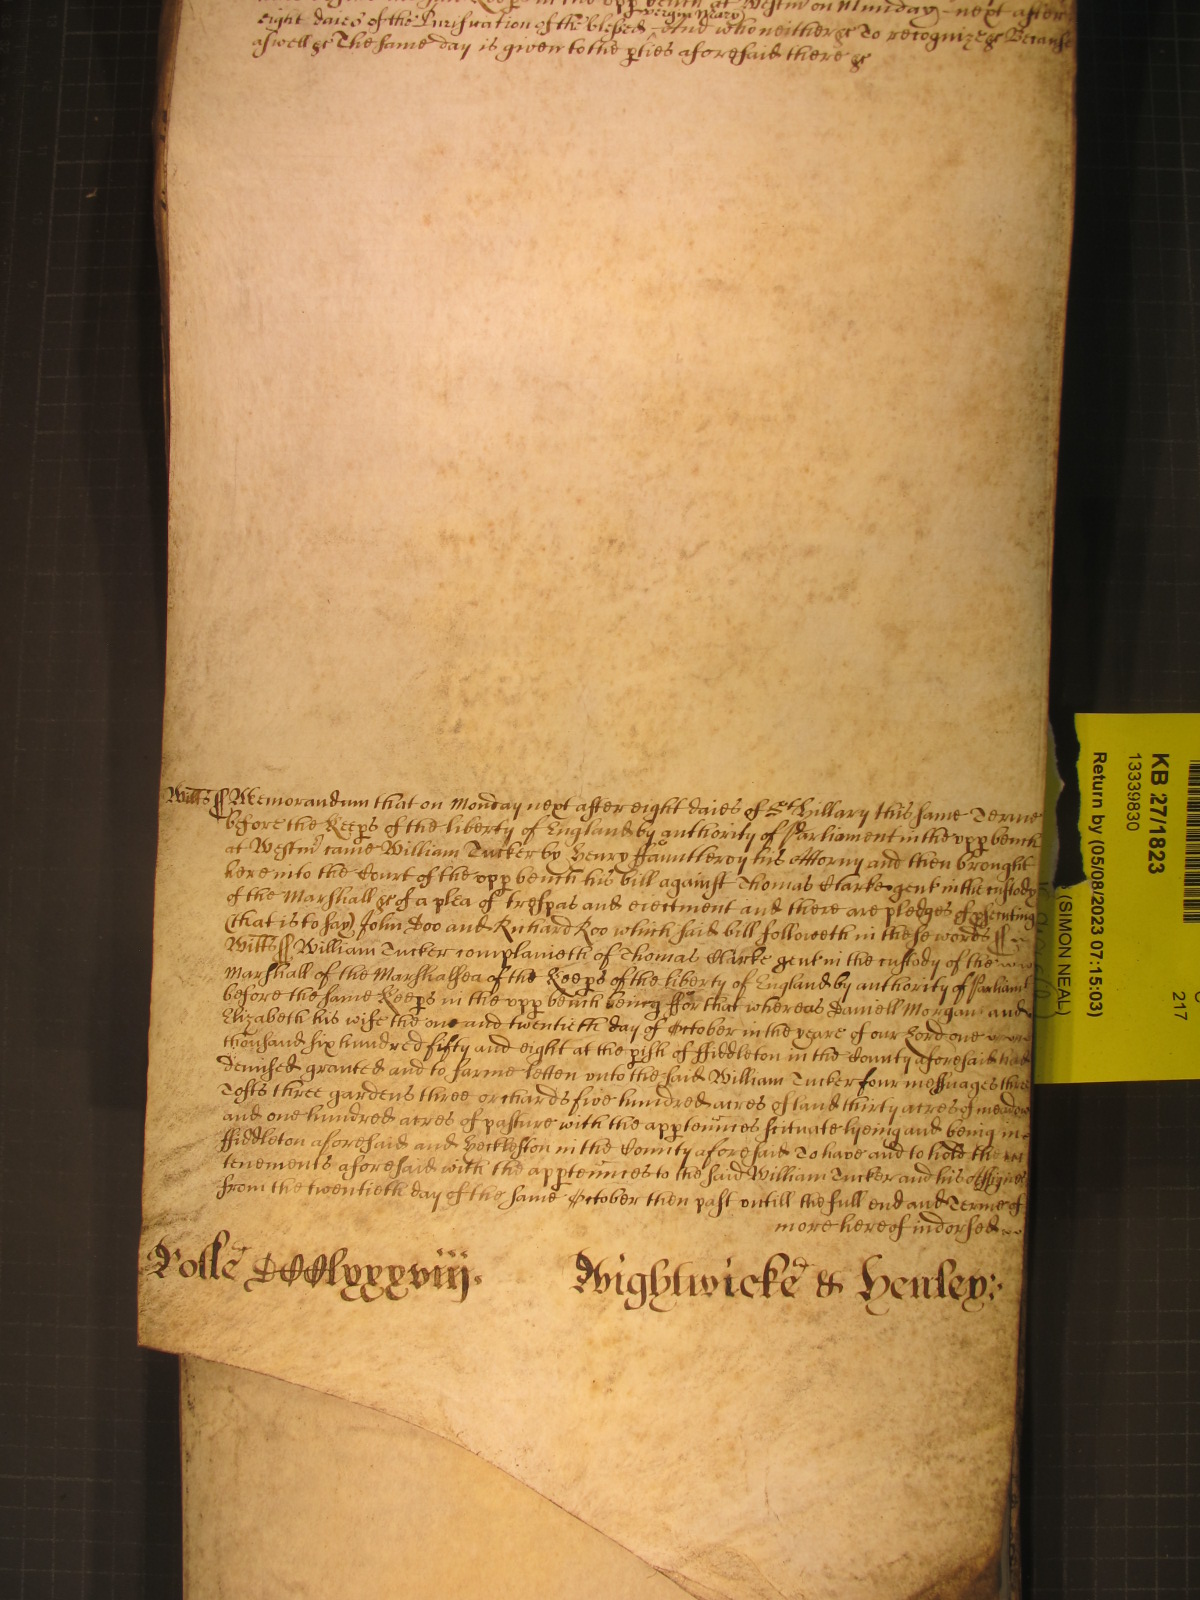 upp bench at Westm on Munday next after
eight daies of the Purification of the blessed virgin Mary And who neither &c To recognize &c Because
aswell &c The same day is given to the pties aforesaid there &c
Wilts ss Memorandum that on Monday next after eight daies of St Hillary this same Terme
before the Keeps of the liberty of England by authority of Parliament in the upp bench
at Westm came William Tucker by Henry ffauntleroy his Attorny and then brought
here into the Court of the upp bench his bill against Thomas Clarke gent in the custody
of the Marshall &c of a plea of trespas and eiectment and there are pledges of psecuting
(that is to say) John Doo and Richard Roo which said bill followeth in these words ss
Wilts ss William Tucker complaineth of Thomas Clarke gent in the custody of the
Marshall of the Marshalsea of the Keeps of the liberty of England by authority of Parliamt
before the same Keeps in the upp bench being ffor that whereas Daniell Morgan and
Elizabeth his wife the one and twentieth day of October in the yeare of our Lord one
thousand six hundred fifty and eight at the pish of ffiddleton in the County aforesaid had
demised granted and to farme letten unto the said William Tucker four messuages three
Tofts three gardens three orchards five hundred acres of land thirty acres of meadow
and one hundred acres of pasture with the apptennces scituate lyeing and being in
ffiddleton aforesaid and in the County aforesaid To have and to hold the
tenements aforesaid with the apptennces to the said William Tucker and his Assignes
from the twentieth day of the same October then past untill the full end and Terme of
more hereof indorsed
Rolle DCClxxxviij.
Wightwicke & Henley:
KB 27/1823
13339830
Return by (05/08/2023 07:15:03)
(SIMON NEAL)
217